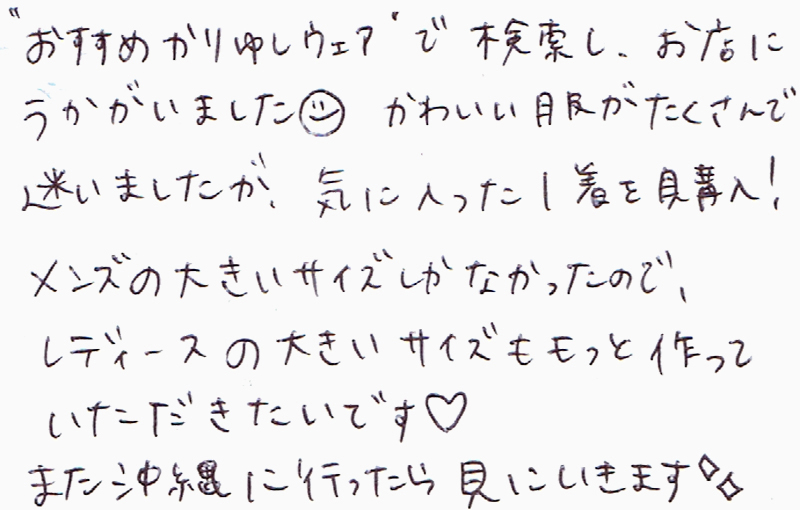 "おすすめかりゆしウェア"で検索し、お店に
うかがいました☺ かわいい服がたくさんで
迷いましたが、気に入った1着を購入!
メンズの大きいサイズしかなかったので、
レディースの大きいサイズももっと作って
いただきたいです♡
また沖縄に行ったら見にいきます✨